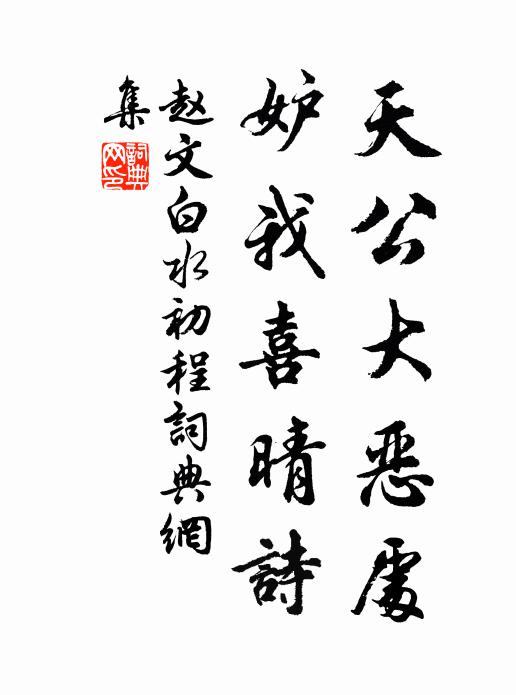 天公大惡處
妒我喜晴詩
赵文白水初程詞典網
集
詞典
网印